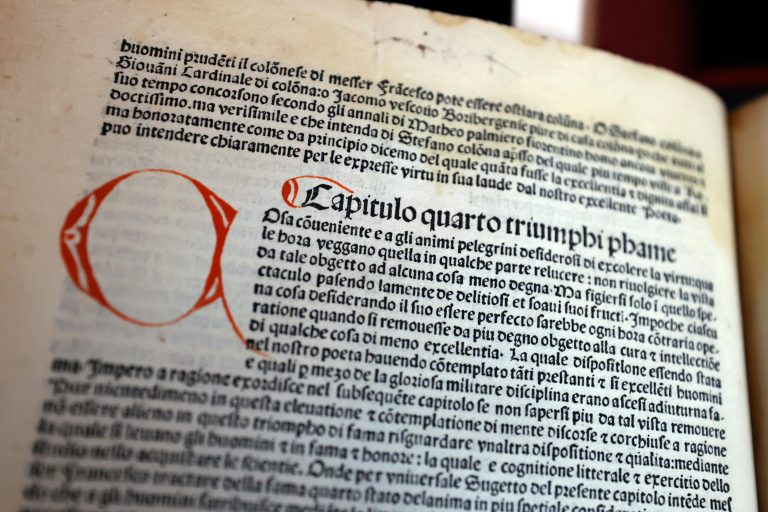 huomini prudẽti il colõnese di messer Frãcesco pote essere ostiara colũna. O Stefano colũna o
Giouãni Cardinale di colõna: o Jacomo vescouo Boribergense pure di casa colõna: po che tutti al
suo tempo concorsono secondo gli annali di Matheo palmiero fiorentino homo ancora
doctissimo. ma verisimile e che intenda di Stefano colõna apsso del quale piu tempo visse a
ma honoratamente come da principio dicemo del quale quãta fusse la excellentia τ dignita assai si
puo intendere chiaramente per le expresse virtu in sua laude dal nostro excellente Poeta.
Capitulo quarto triumphi phame
QOsa cõueniente e a gli animi pelegrini desiderosi di excolere la virtu: que
le hora veggano quella in qualche parte relucere: non riuolgiere la vista
da tale obgetto ad alcuna cosa meno degna. Ma figiersi solo ĩ quello spe
ctaculo pasendo la mente de delitiosi et soaui suoi fructi. Impoche ciascu
na cosa desiderando il suo essere perfecto sarebbe ogni hora cõtraria ope
ratione quando si remouesse da piu degno obgetto alla cura τ intellectiõe
di qualche cosa di meno excellentia. La quale dispositione essendo stata
nel nostro poeta hauendo cõtemplato tãti prestanti τ si excellẽti huomini
e quali p mezo de la gloriosa militare disciplina erano ascesi ad iuturna fa
ma. Impero a ragione exordisce nel subsequẽte capitolo se non sapersi piu da tal vista remouere
Pur nientedimeno in questa eleuatione τ cõtemplatione di mente discorse τ corchiuse a ragione
nõ essere alieno in questo triompho di fama risguardare vnaltra dispositione τ qualita: mediante
la quale si leuano gli huomini τ in fama τ honore: la quale e cognitione litterale τ exercitio dello
studio nello acquistare le scientie. Onde per vniuersale Sugetto del presente capitolo intẽde mes
ser Francesco tractare della fama quarto stato delanima in piu spetiale
che a gli huomini